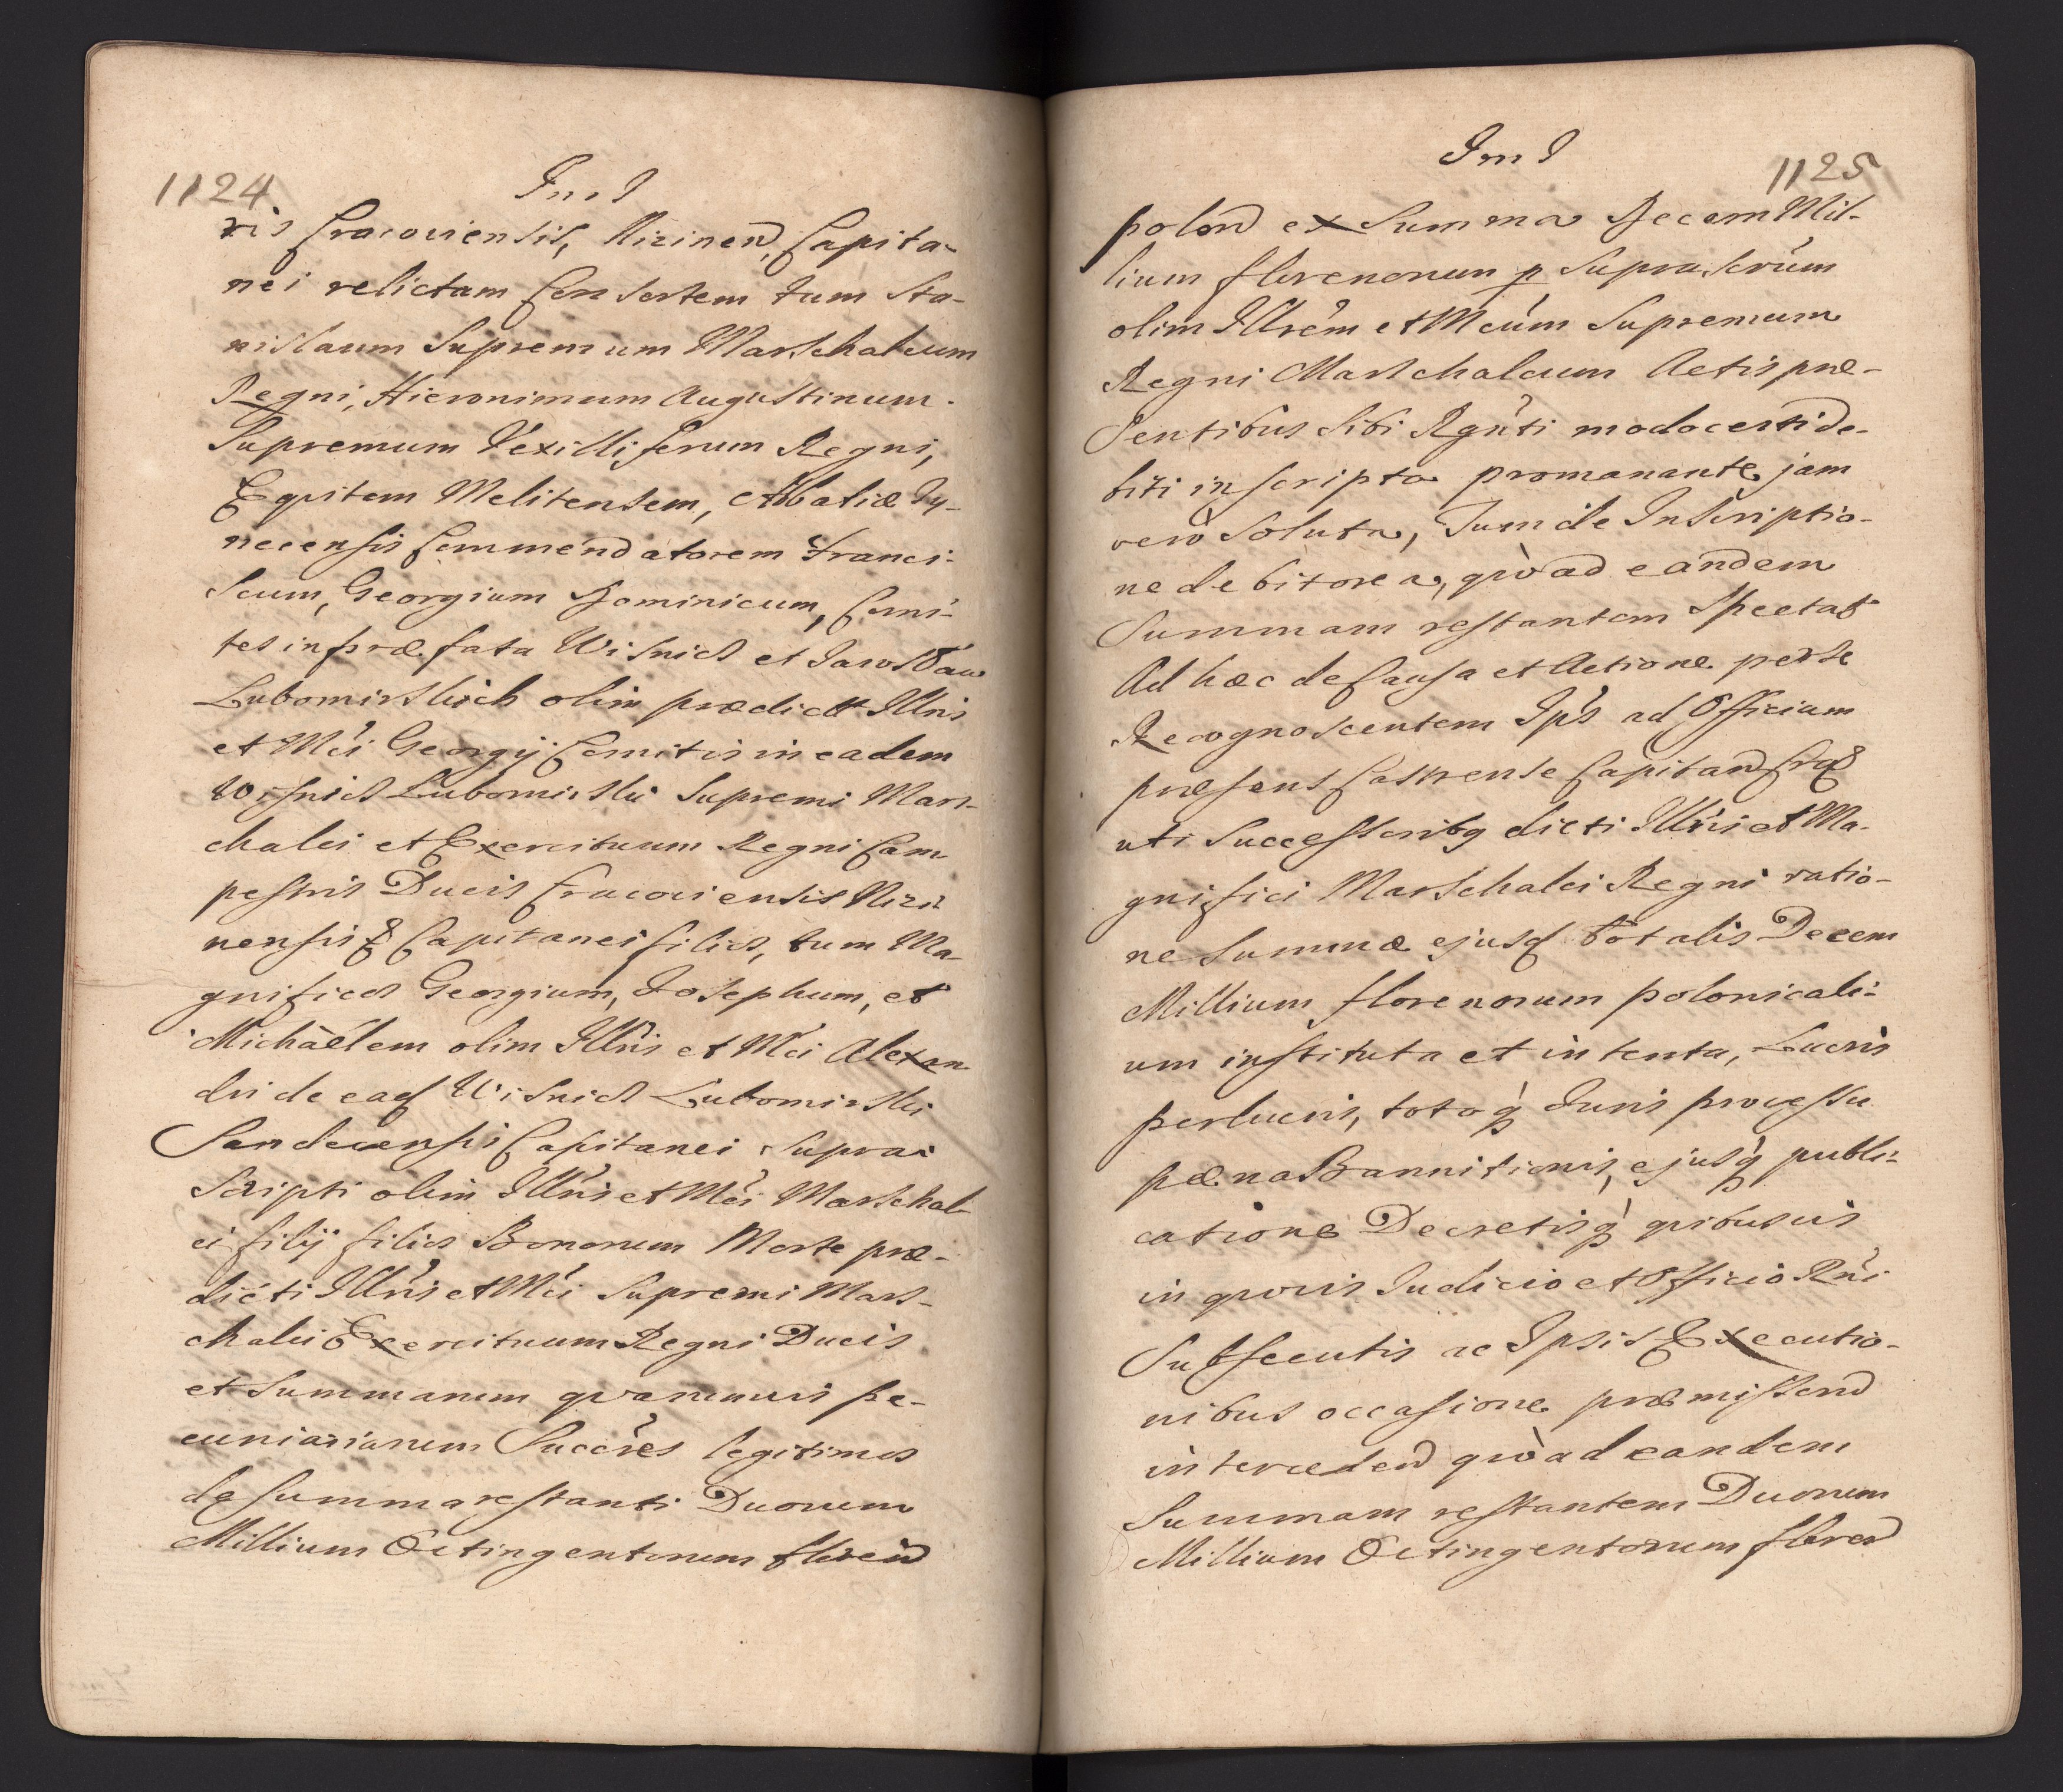 1124
Im I
ris Cracoviensis, Nizinen, Capita-
nei relictam Consortem tum Sta-
nislaum Supremum Marschalcum
Regni, Hieronimum Augustinum
Supremum Vexilliferum Regni,
Equitem Melitensem, Abbatiæ Ty-
necensis Commendatorem Franci-
scum, Georgium Dominicum, Comi-
tes in præfata Wisnicz et Jaroslaw
Lubomirskich olim prædicti Illris
et Mci Georgij Comitis in eadem
Wisnicz Lubomirski Supremi Mars-
chalci et Exercituum Regni Cam-
pestris Ducis Cracoviensis Nizi-
nensis Capitanei filios, tum Ma-
gnificos Georgium, Josephum, et
Michaëlem olim Illris et Mci Alexan
dri de ead Wisnicz Lubomirski
Sandecensis Capitanei Supra
scripti olim Illris et Mci Marschal
ci filij filios Bonorum Morte præ-
dicti Illris et Mci Supremi Mars-
chalci Exercituum Regni Ducis
et Summarum qvarumvis pe-
cuniariarum Succres legitimos
de summa restanti Duorum
Millium Octingentorum floren
1125
Im I
polon ex Summa Decem Mil-
lium florenorum p Suprascrum
olim Illrem et Mcum Supremum
Regni Marschalcum Actis præ-
sentibus sibi Rgnti modo certi de-
biti inscripta promanante jam
vero Soluta, Tum de Inscriptio-
ne debitorea, qvoad eandem
Summam restantem Spectat
Ad hæc de Causa et Actione per se
Recognoscentem Ips ad Officium
præsens Castrense Capitan Crac
uti Successoribq dicti Illris et Ma-
gnifici Marschalci Regni ratio-
ne Summæ ejusd totalis Decem
Millium florenorum polonicali-
um instituta et intenta, Lucris
perlucris, totoq Juris processu
pæna Bannitionis, ejusq publi-
catione Decretisq qvibusvis
in qvovis Judicio et Officio Rni
Subsecutis ac Ipsis Executio-
nibus occasione præmissorum
interceden qvoad eandem
Summam restantem Duorum
Millium Octingentorum floren